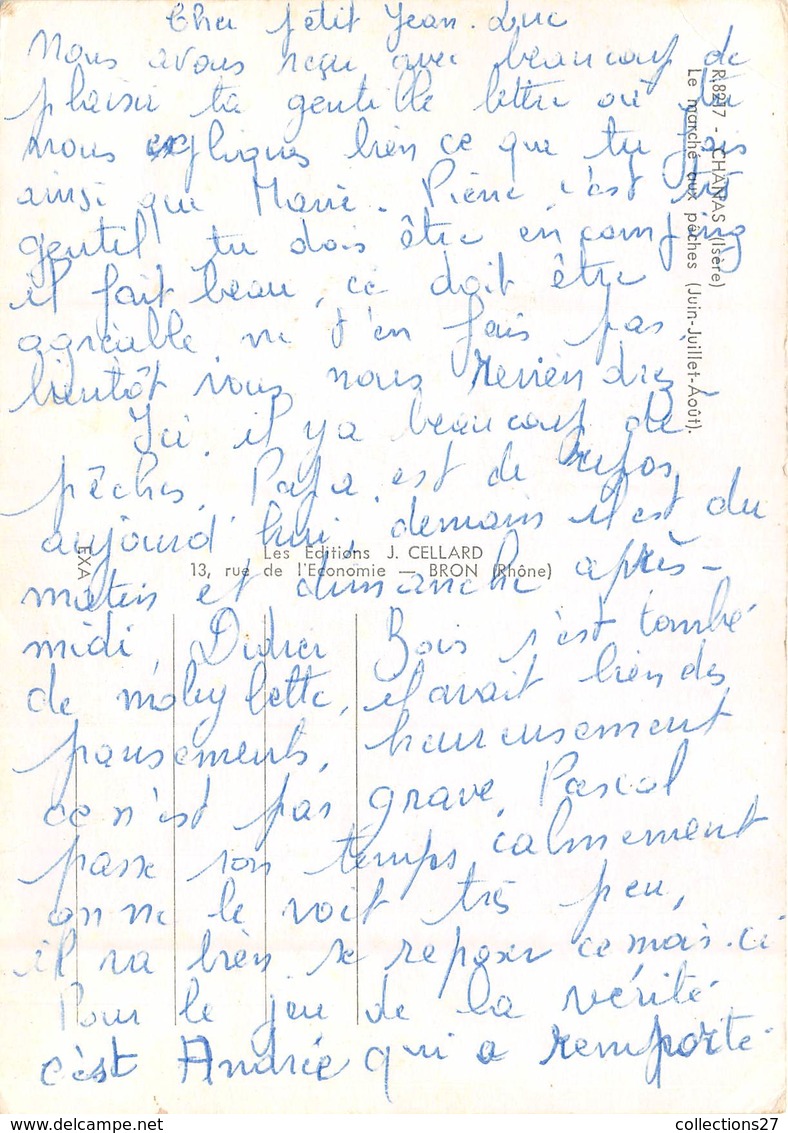 Cher petit Jean-Luc
Nous avons reçu avec beaucoup de
plaisir ta gentille lettre où tu
nous expliques bien ce que tu fais
ainsi que Marie-Pierre c'est très
gentil tu dois être en camping
il fait beau, ce doit être
agréable ne t'en fais pas,
bientôt vous nous reviendrez
Ici, il y a beaucoup de
pêches, Papa est de repos
aujourd'hui, demain il est du
matin et dimanche après-
midi, Didier Bois s'est tombé
de mobylette, il avait bien des
pansements, heureusement
ce n'est pas grave, Pascal
passe son temps calmement
on ne le voit très peu,
il va bien se reposer ce mois-ci
Pour le jeu de la vérité
c'est Andrée qui a remporté
R.8217 - CHANAS (Isère)
Le marché aux pêches (Juin-Juillet-Août).
Les Editions J. CELLARD
13, rue de l'Economie — BRON (Rhône)
EXA
collections27